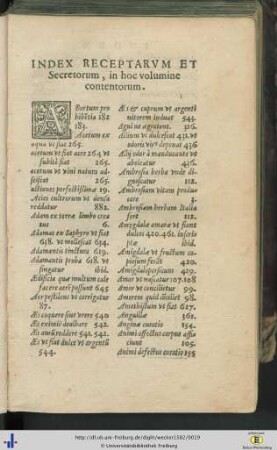 INDEX RECEPTARVM ET
Secretorum, in hoc volumine
contentorum.
ABortum pro
hibētia 182
183.
Acetum ex
aqua vt fiat 265.
acetum vt fiat acre 264. vt
subitò fiat 265.
acetum vt vini naturā ad-
265.
actiones perfectissimæ 19.
Acies cultrorum vt densa
reddatur 882.
Adam ex terræ limbo crea
tus 6.
Adamas ex saphyro vt fiat
618. vt mollescat 634.
Adamantis tinctura 619.
Adamantis proba 618. vt
fingatur ibid.
Ædificia quæ multum cale
facere aerē possunt 645
Aer pestilens vt corrigatur
87.
Æs coquere sine vrere 540
Æs eximiè dealbare 542.
Æs auri reddere 541. 542.
Æs vt fiat dulce vt argentū
544.
Æs & cuprum vt argenti
nitorem induat 543.
Agni ne ægrotent. 326.
Allium vt dulcescat 432. vt
odoris vis deponat 436
Alij odor à manducante vt
abigatur 436.
Ambrosia herba vnde di-
gnoscatur 112.
Ambrosiam vitam produ-
cere 3.
Ambrosiam herbam Italia
fert 112.
Amygdalæ amaræ vt fiant
dulces 420. 462.
ibid.
Amigdalæ vt fructum co-
piosum ferāt 420.
420.
Amor vt nascatur 107. 108
Amor vt concilietur 99.
Amorem quid 98.
Amethistum vt fiat 627.
Anguillæ 361.
Anginæ curatio 154.
Animi affectus corpus affi
ciunt 105.
Animi defectus curatio 155
http://dl.ub.uni-freiburg.de/diglit/wecker1582/0019
© Universitätsbibliothek Freiburg